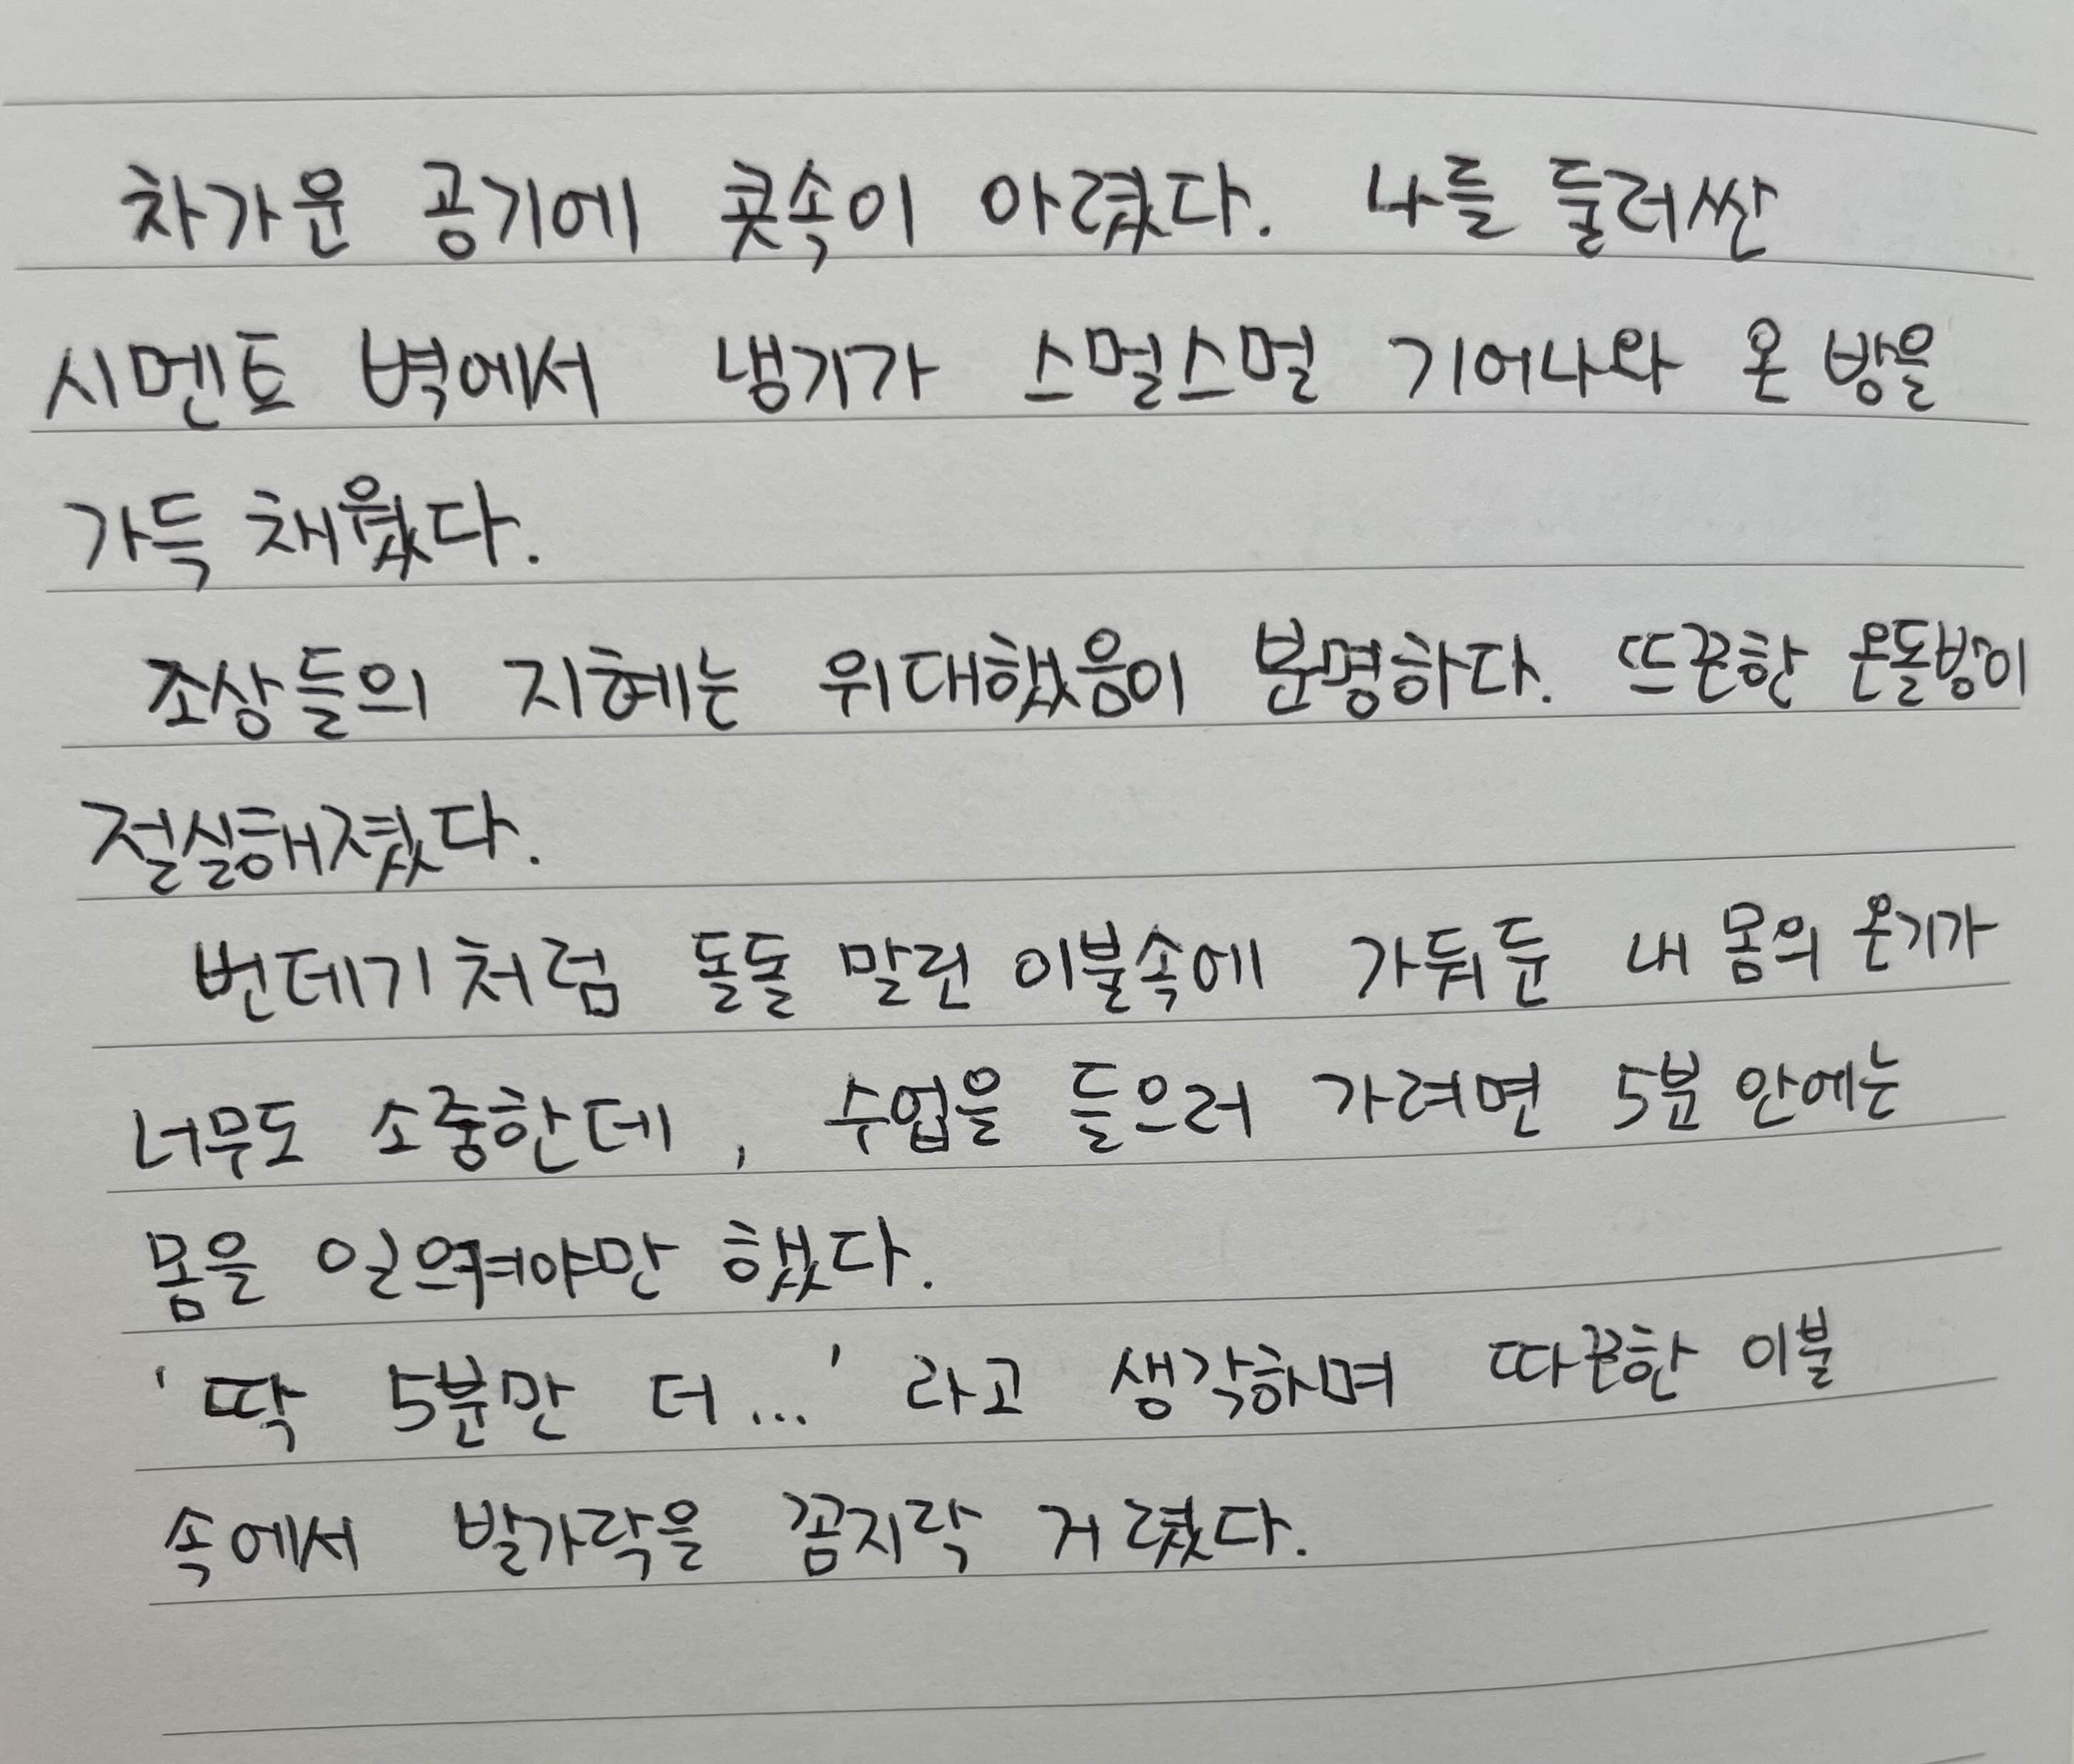 차가운 공기에 콧속이 아렸다. 나를 둘러싼
시멘트 벽에서 냉기가 스멀스멀 기어나와 온 방을
가득 채웠다.
조상들의 지혜는 위대했음이 분명하다. 뜨끈한 온돌방이
절실해졌다.
번데기처럼 돌돌 말린 이불속에 가둬둔 내 몸의 온기가
너무도 소중한데, 수업을 들으러 가려면 5분 안에는
몸을 일으켜야만 했다.
'딱 5분만 더...' 라고 생각하며 따끈한 이불
속에서 발가락을 꼼지락 거렸다.